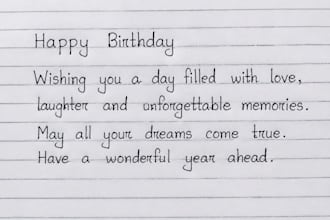 Happy Birthday
Wishing you a day filled with love,
laughter and unforgettable memories.
May all your dreams come true.
Have a wonderful year ahead.